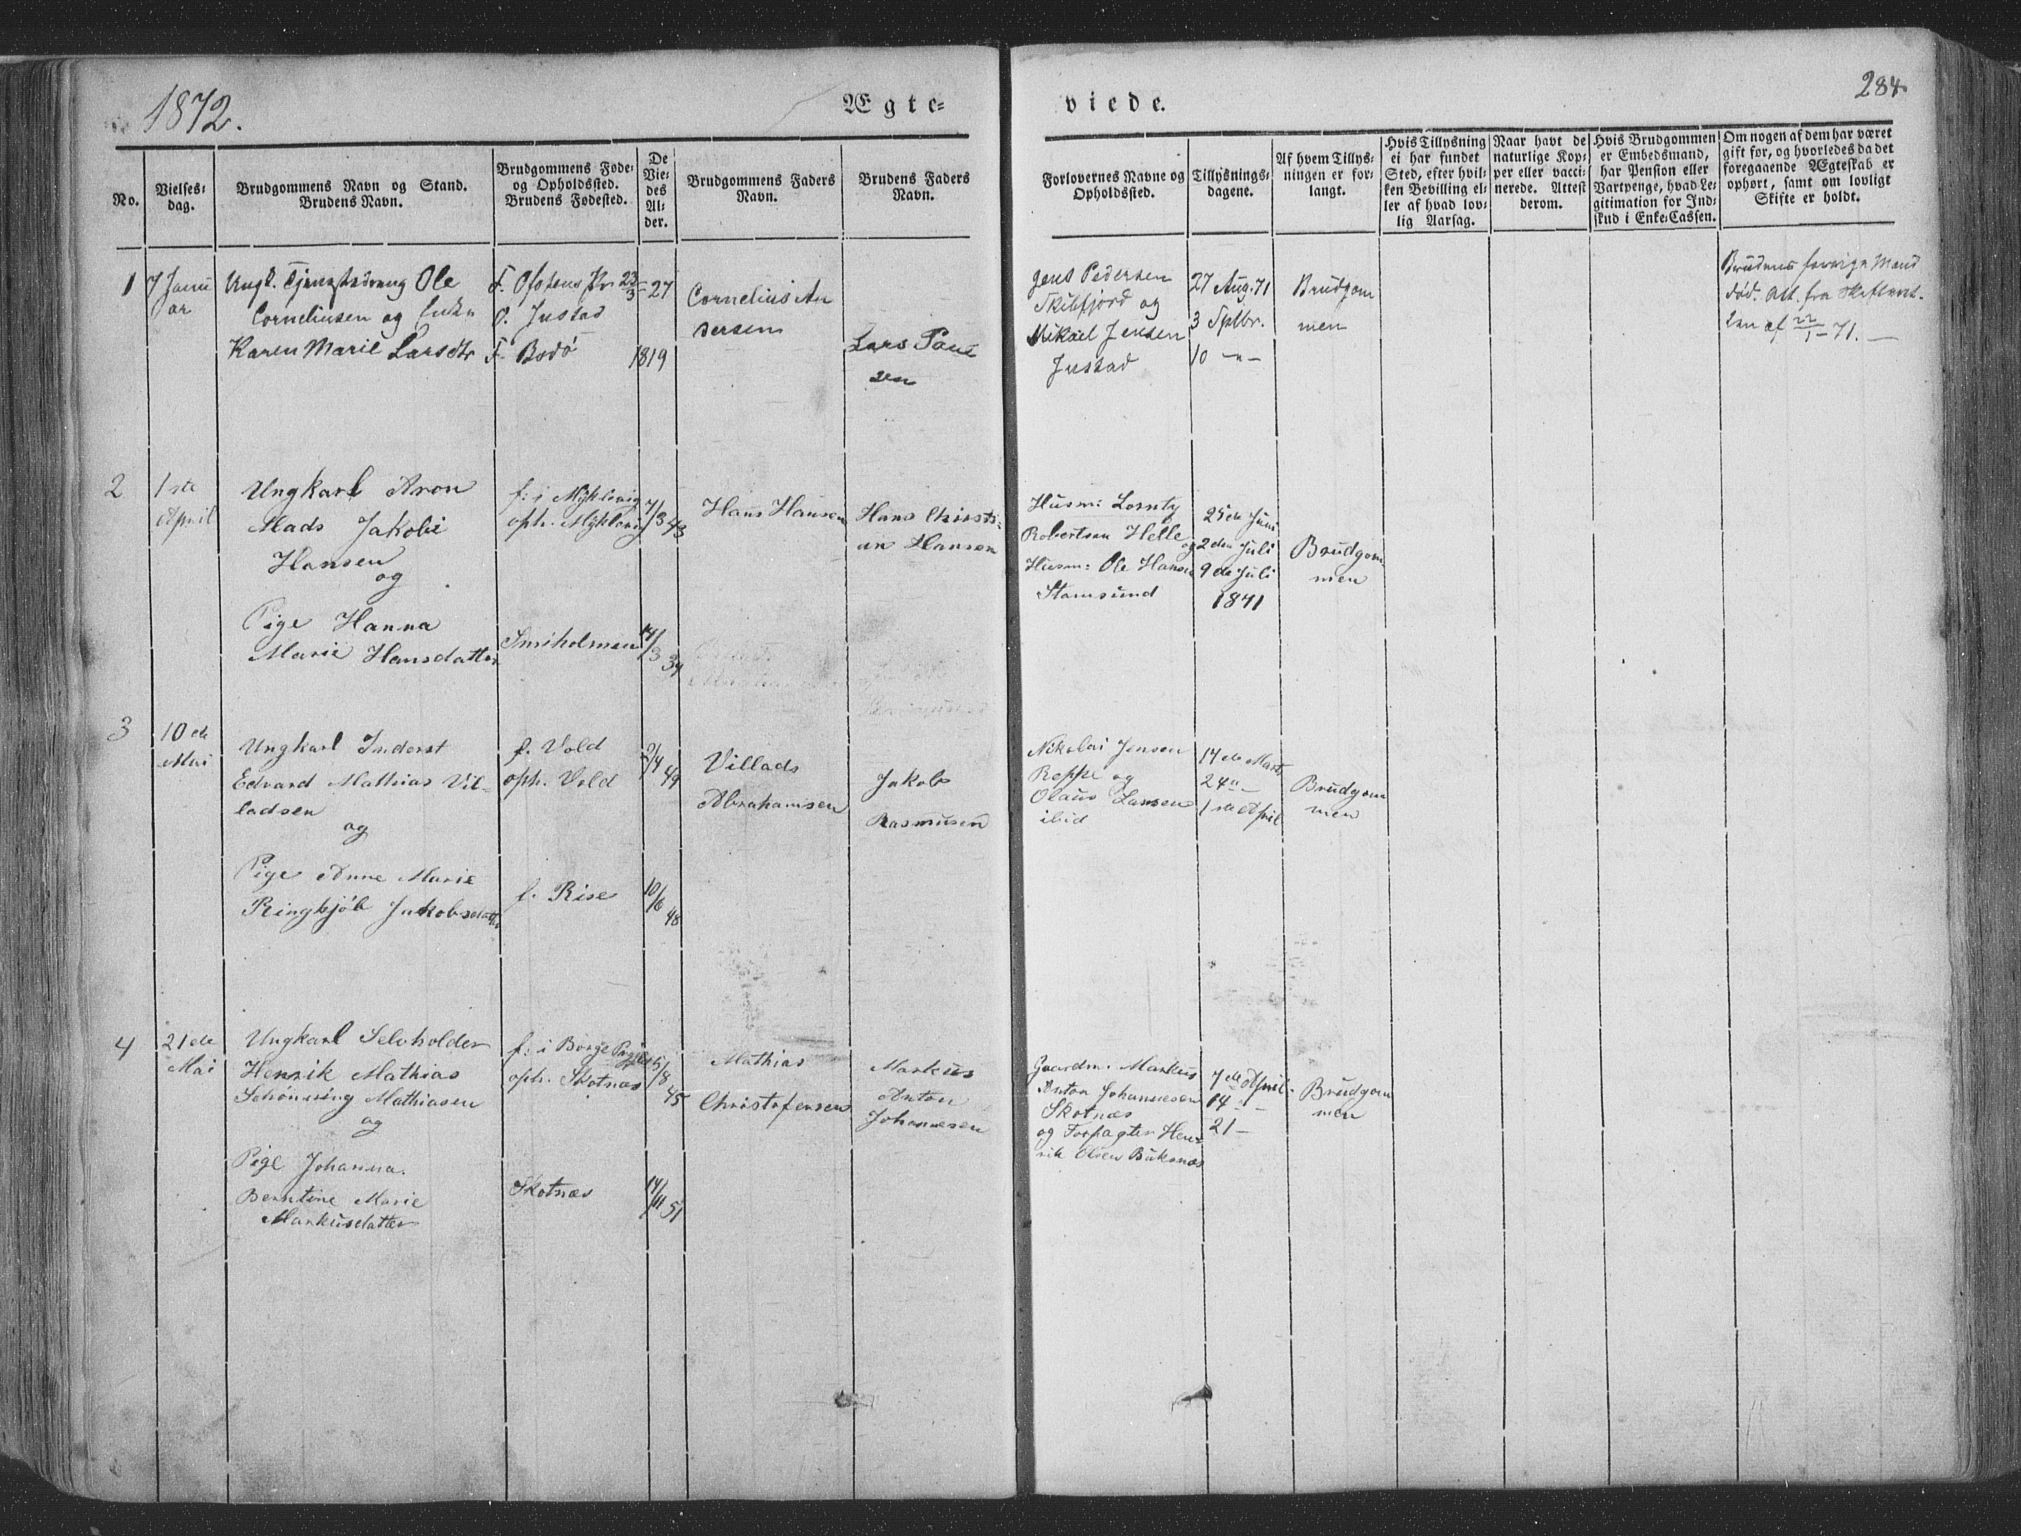 1872.
Ægte-
viede.
284
No.
Vielses-
dag.
Brudgommens Navn og Stand.
Brudens Navn.
Brudgommens Føde-
og Opholdssted.
Brudens Fødested.
De
Vie-
des
Al-
der.
Brudgommens Faders
Navn.
Brudens Faders
Navn.
Forlovernes Navne og
Opholdssted.
Tillysnings-
dagene.
Af hvem Tillys-
ningen er for-
langt.
Hvis Tillysning
ei har fundet
Sted, efter hvil-
ken Bevilling el-
ler af hvad lov-
lig Aarsag.
Naar havt de
naturlige Kop-
per eller vacci-
nerede. Attest
derom.
Hvis Brudgommen
er Embedsmand,
har Pension eller
Vartpenge, hvad Le-
gitimation for Ind-
skud i Enke-Cassen.
Om nogen af dem har været
gift før, og hvorledes da det
foregaaende Ægteskab er
ophørt, samt om lovligt
Skifte er holdt.
1
7 Janu
ar
Ungk. Tjenestedreng Ole
Corneliusen og Enke
Karen Marie Larsdtr
F. Ofotens Pr.
O. Justad
F. Bodø
23/3 27
1819
Cornelius An
dersen
Lars Paul
sen
Jens Pedersen
Skibfjord og
Mikael Jensen
Justad
27 Aug. 71
3 Sptbr.
10 -"-
Brudgom
men
Brudens forrige Mand
død. Att. fra Skifteret-
ten af 22/1 - 71. -
2
1ste
April
Ungkarl Aron
Mads Jakobi
Hansen
og
Pige Hanna
Marie Hansdatter
f: i Myklevig
oph. Myklevig
Smiholmen
7/3 43
14/3 39
Hans Hansen
Hans Christi-
an Hansen
Husm: Lornty
Robertsen Helle
og
Husm: Ole Hansen
Stamsund
25de Juni
2den Juli
9de Juli
1871
Brudgom
men
3
10de
Mai
Ungkarl Inderst
Edvard Mathias Vil-
ladsen
og
Pige Anne Marie
Ringkjøb Jakobsdatter
f. Vold
oph. Vold
f. Rise
2/4 49
10/6 48
Villads
Abrahamsen
Jakob
Rasmusen
Nikolai Jensen
Reppe og
Olaus Larsen
ibid
17de Marts
24 " -
1ste April
Brudgom
men
4
21de
Mai
Ungkarl Selvholder
Henrik Mathias
Schønning Mathiasen
og
Pige Johanna
Berntine Marie
Markusdatter
f: i Borge Prgjeld
oph. Skotnæs
Skotnæs
5/8 45
14/11 51
Mathias
Christofersen
Markus
Anton
Johannesen
Gaardm. Markus
Anton Johannesen
Skotnæs
og Forpagter Hen-
rik Olsen Buksnæs
7de April
14 " -
21 -
Brudgom
men